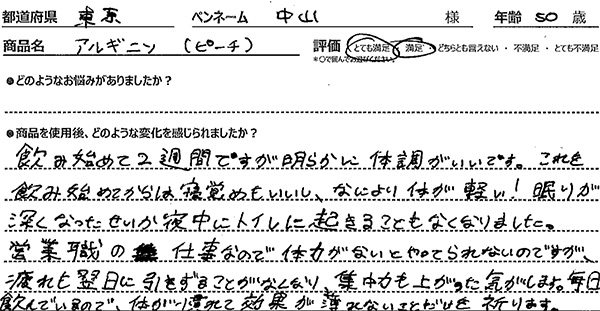 都道府県 東京 ペンネーム 中山 様 年齢 50 歳
商品名 アルギニン (ピーチ) 評価 とても満足・満足・どちらとも言えない・不満足・とても不満足
*○で囲んでお選びください。
●どのようなお悩みがありましたか?
●商品を使用後、どのような変化を感じられましたか?
飲み始めて2週間ですが明らかに体調がいいです。これを
飲み始めてからは寝覚めもいいし、なにより体が軽い!眠りが
深くなったせいか夜中にトイレに起きることもなくなりました。
営業職の仕事なので体力がないとやってられないのですが、
疲れも翌日に引きずることがなくなり、集中力も上がった気がします。毎日
飲んでいるので、体がり慣れて効果が薄れないことだけを祈ります。